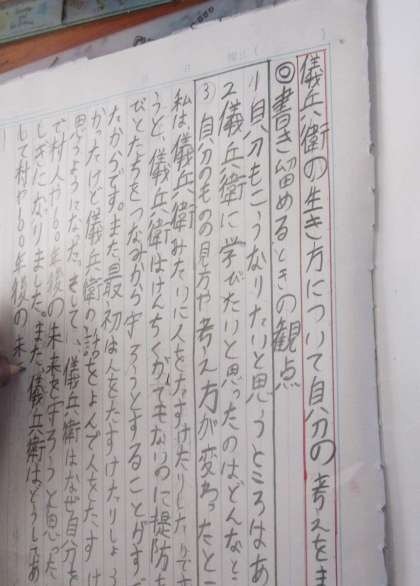 儀兵衛の生き方について自分の考えをま
◎書き留めるときの観点
1自分もこうなりたいと思うところはあ
2儀兵衛に学びたいと思ったのはどんなと
3自分のものの見方や考え方が変わったとこ
私は儀兵衛みたいに人をたすけたりしたいです
うと、儀兵衛はけんちくができないのに堤防を
びとたちをつなみから守ろうとすることがす
たからです。また最初は人をたすけたりしよう
かったけど儀兵衛の話をよんで人をたすけ
思うようになった。そして、儀兵衛はなぜ自分を
で村人や60年後の未来を守ろうと思った
しぎになりました。また、儀兵衛はどうしてあ
して村や60年後の未